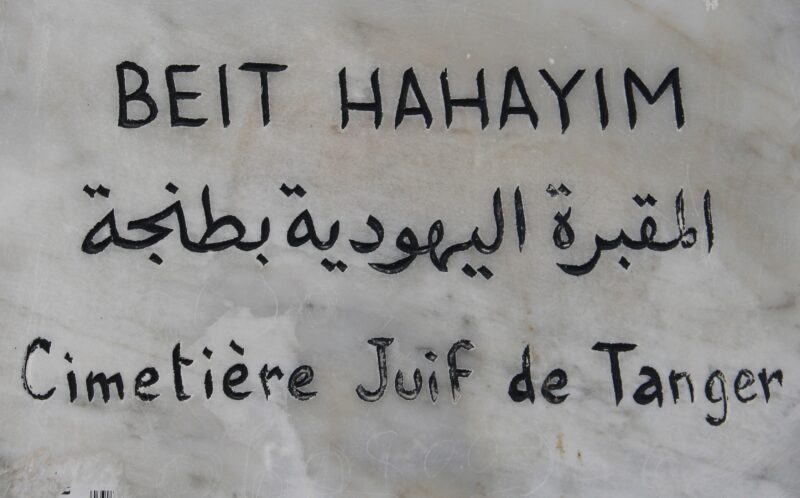 BEIT HAHAYIM
المقبرة اليهودية بطنجة
Cimetière Juif de Tanger